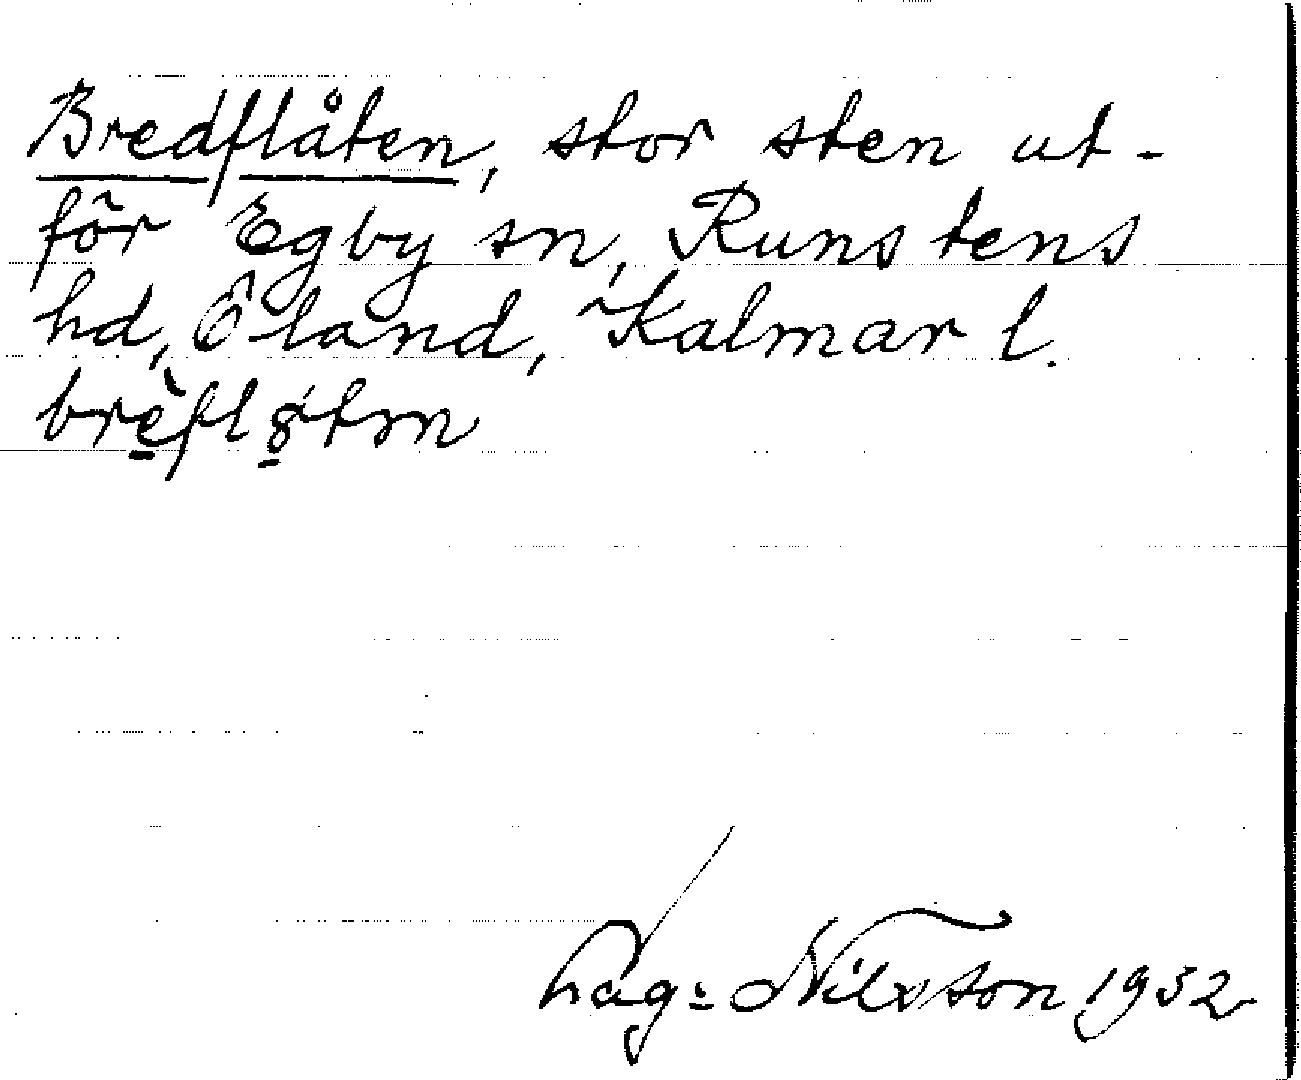 Bredflåten, stor sten ut-
för Egby sn, Runstens
hd, Öland, Kalmar l.
Nilsson 1932